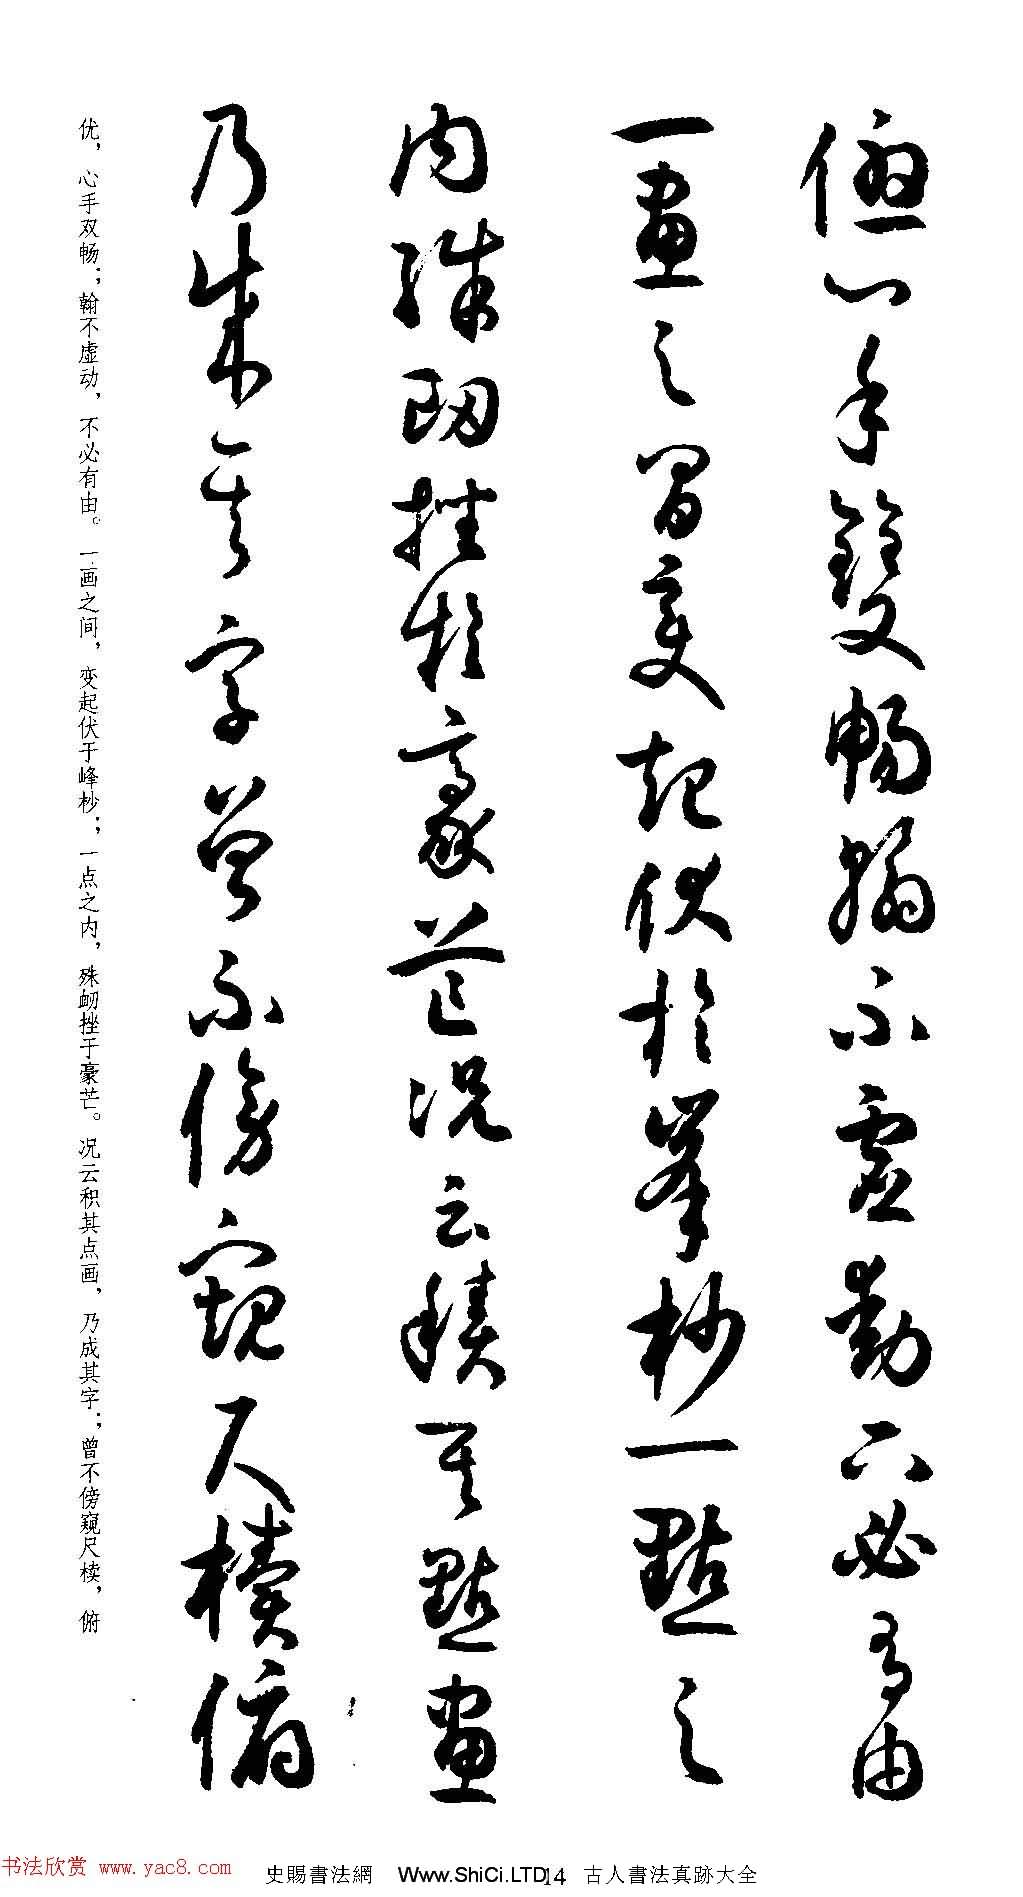 優心手雙暢翰不虛動下必有由
一畫之間變起伏於峯杪一點之
內殊衂挫於豪芒況云積其點畫
乃成其字曾不傍窺尺櫝俯
优，心手双畅；翰不虚动，不必有由。一画之间，变起伏于峰杪；一点之内，殊衄挫于豪芒。况云积其点画，乃成其字；曾不傍窥尺椟，俯
书法欣赏 www.yac8.com 史賜書法網 Www.ShiCi.LTD 14 古人書法真跡大全